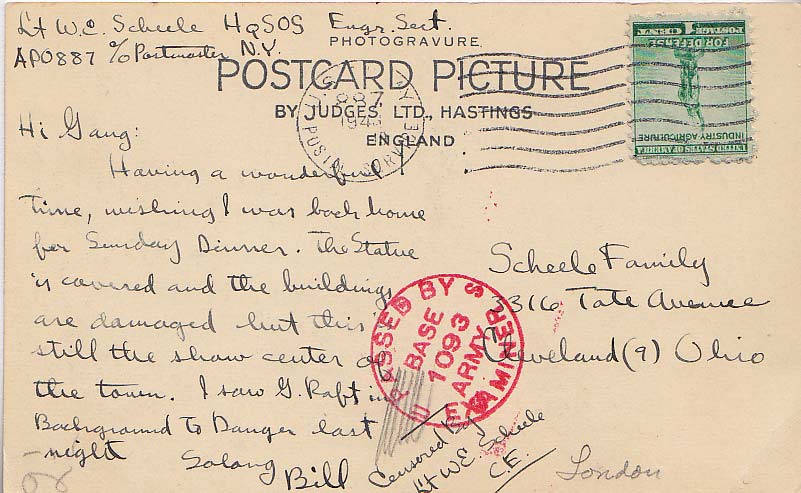 Lt W.E. Scheele HqSOS Engr. Sect.
APO887 c/o Postmaster N.Y.
PHOTOGRAVURE
POSTCARD PICTURE
BY JUDGES LTD., HASTINGS
ENGLAND
887
1943
POSTAL SERVICE
UNITED STATES OF AMERICA
INDUSTRY AGRICULTURE
FOR DEFENSE
1 CENT
POSTAGE
Hi Gang:
Having a wonderful
time, wishing I was back home
for Sunday Dinner. The Statue
is covered and the buildings
are damaged but this
still the show center of
the town. I saw G. Raft in
Background to Danger last
-night Solong
Bill
Scheele Family
3316 Tate Avenue
Cleveland (9) Ohio
PASSED BY
BASE
1093
ARMY
EXAMINER
Censored By
Lt W.E. Scheele
C.E.
London